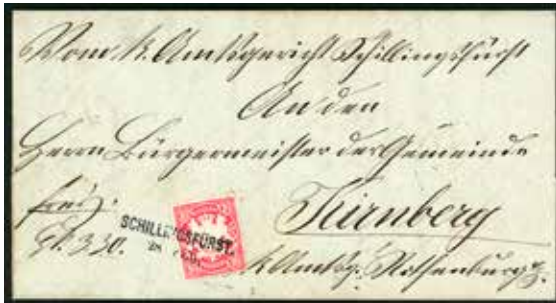 Vom k. Amtsgericht Schillingsfürst
An den
Herrn Bürgermeister der Gemeinde
frei
SCHILLINGSFÜRST.
k. Amtsg. Rothenburg